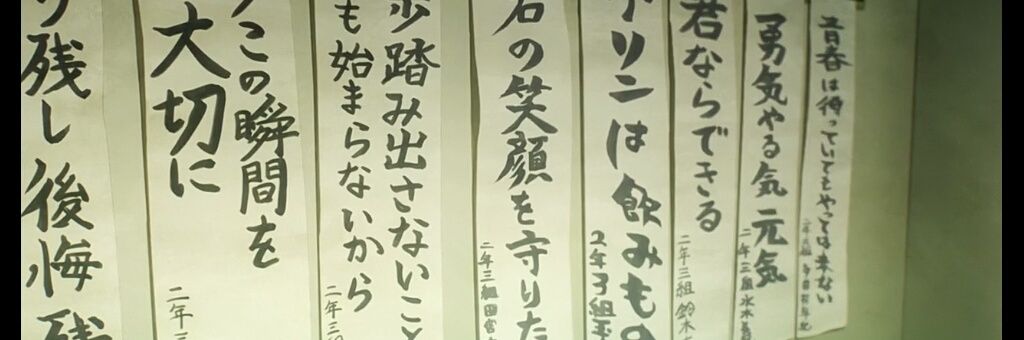 青春は待っていてもやっては来ない
勇気やる気元気
二年三組水木
君ならできる
二年三組 鈴木
リニは飲みもの
2年3組玉
の笑顔を守りた
二年三組田宮
歩踏み出さないこと
も始まらないから
二年三
この瞬間を
大切に
二年三
残し後悔残